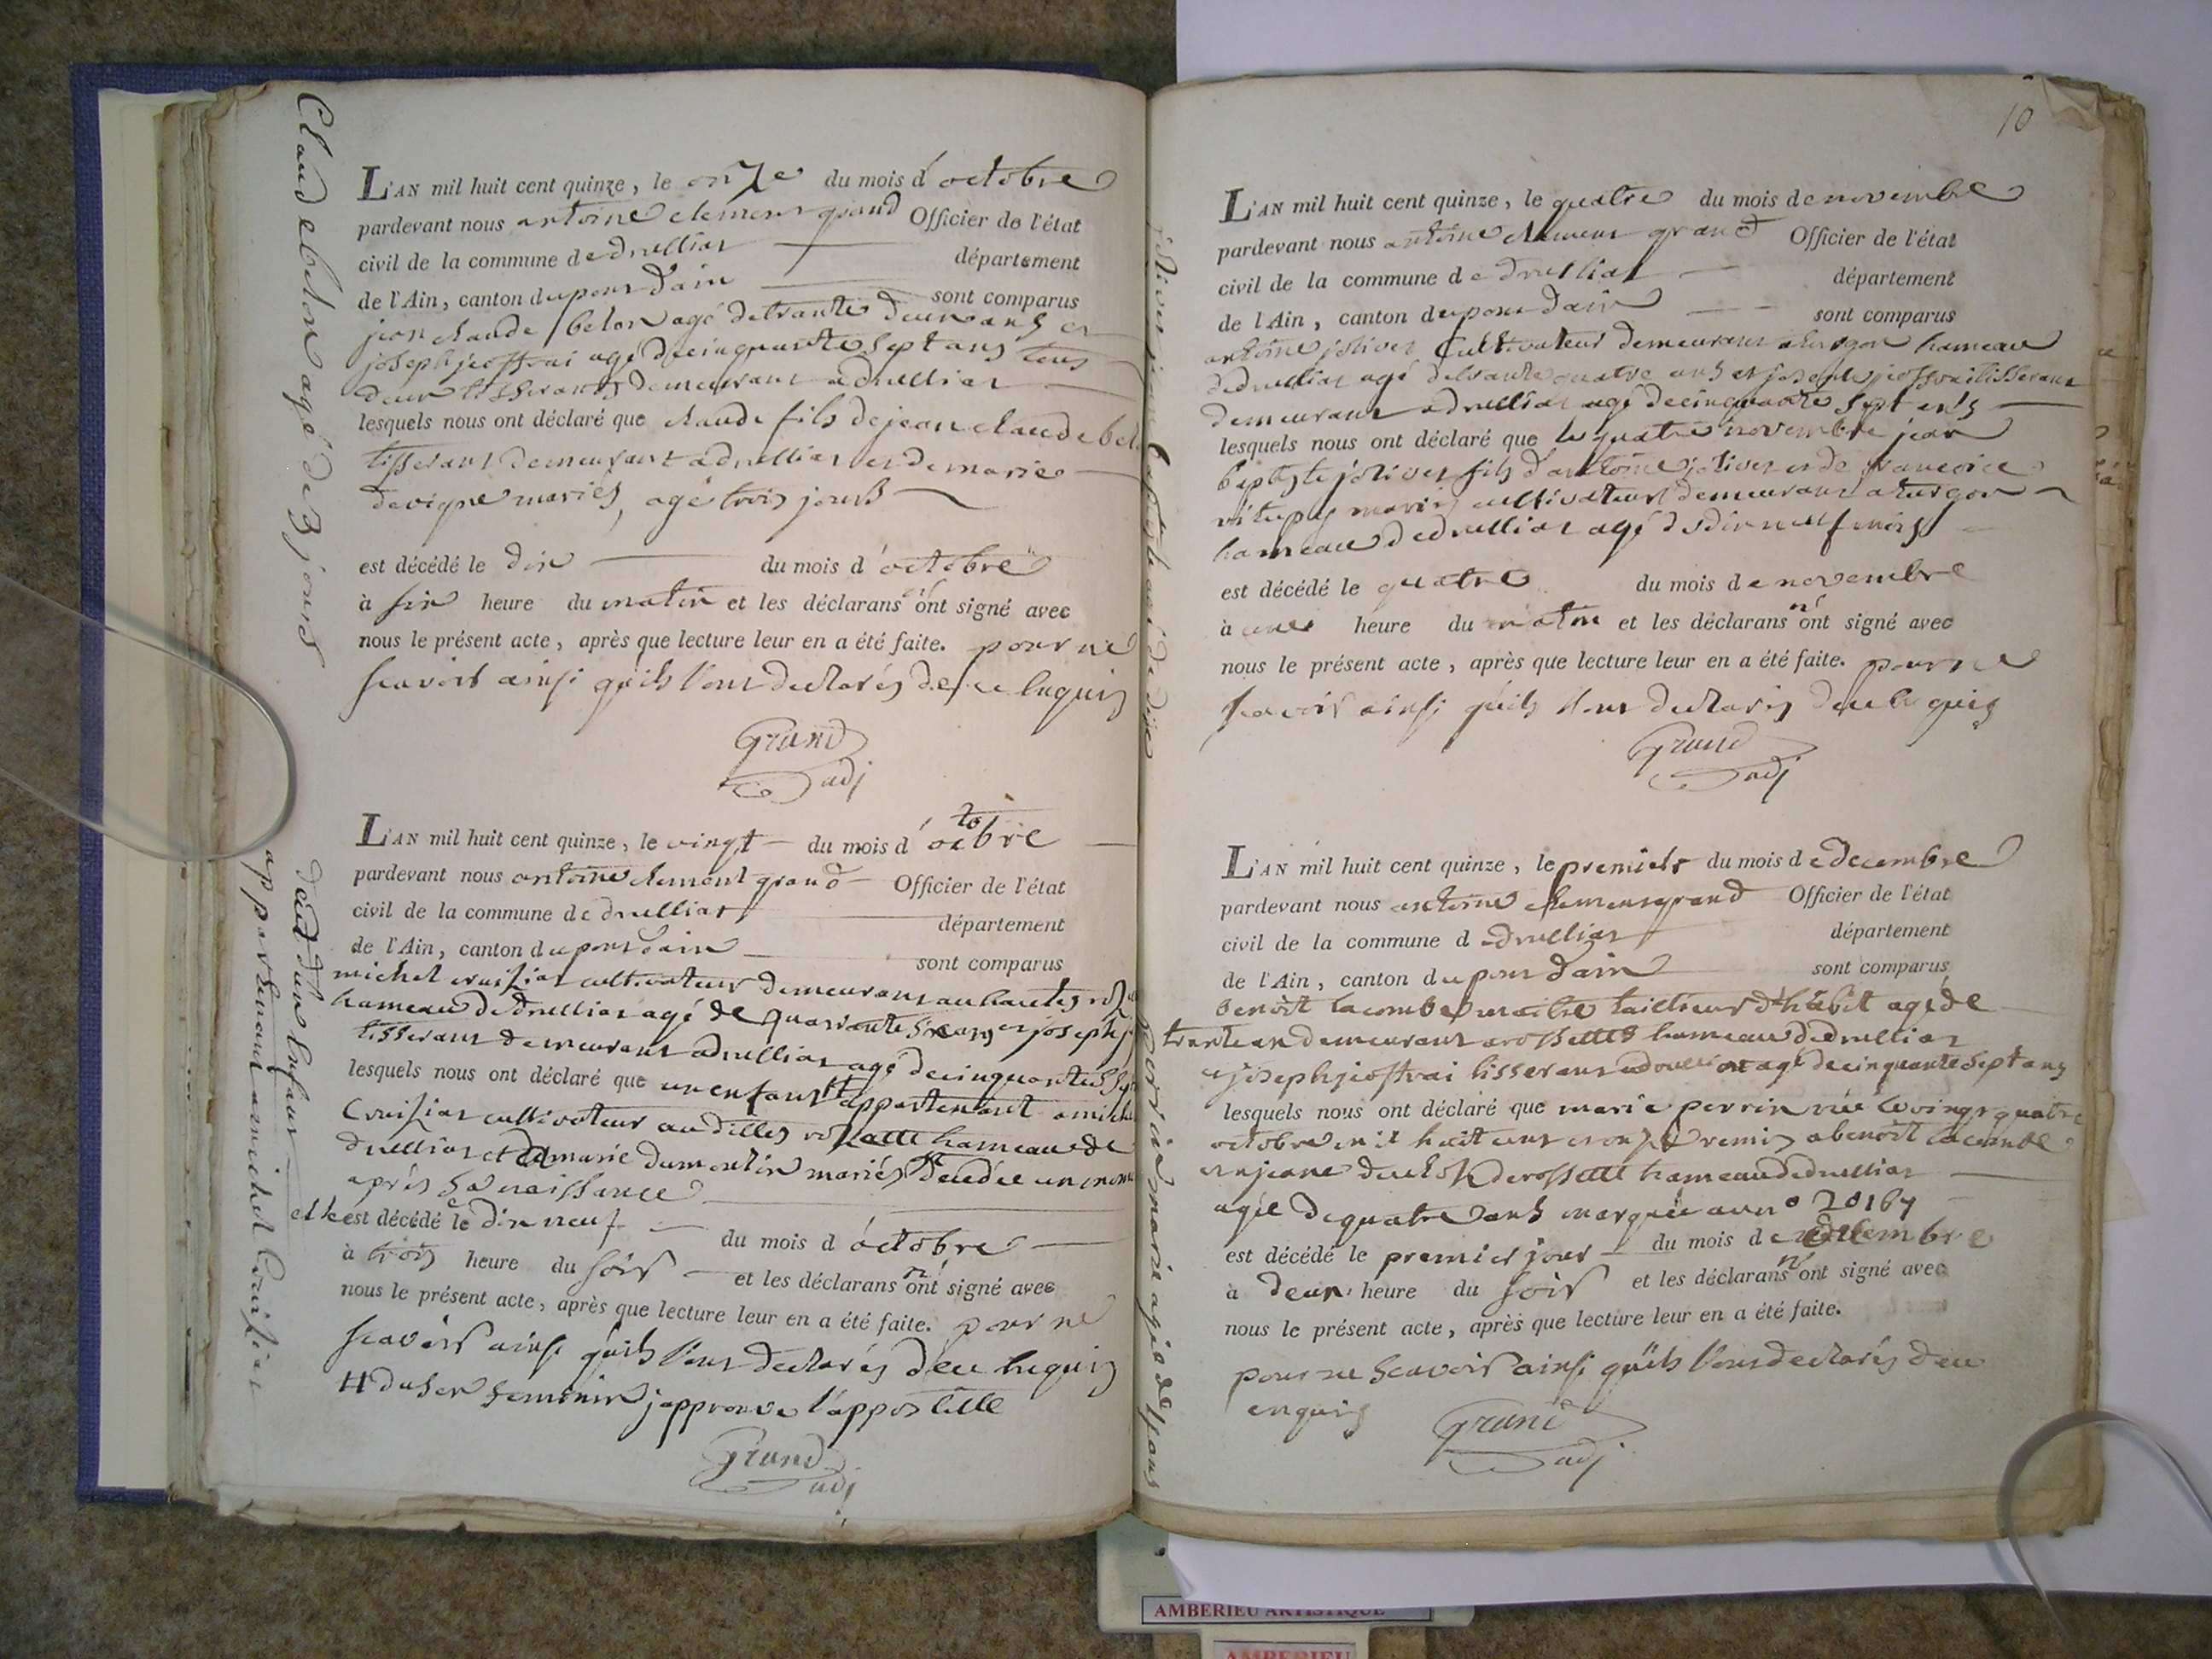 Claude belon agé de 3 jours
L'AN mil huit cent quinze, le onze du mois d'octobre
pardevant nous antoine clement grand Officier de l'état
civil de la commune de druilliat département
de l'Ain, canton du pont dain sont comparus
jean claude belon agé detrante deux ans et
joseph jeoffrai agé de cinquante sept ans tous
deux tisserants demeurant a druilliat
lesquels nous ont déclaré que claude fils de jean claude belon
tisserant demeurant a druilliat et de marie
devigne mariés, agé trois jours
est décédé le dix du mois d'octobre
à six heure du matin et les déclarans n'ont signé avec
nous le présent acte, après que lecture leur en a été faite. pour ne
scavoir ainsi qu'ils l'ont declarés de ce enquis
Grand
adj
deced d'un enfant
appartenant a michel Cruisiat
L'AN mil huit cent quinze, le vingt du mois d'octobre
pardevant nous antoine clement grand Officier de l'état
civil de la commune de druilliat département
de l'Ain, canton du pont dain sont comparus
michel cruisiat cultivateur demeurant au hautes
hameau de druilliat agé de quarante ans et joseph
tisserant demeurant a druilliat agé de cinquante sept
lesquels nous ont déclaré que un enfant # appartenant a michel
Cruisiat cultivateur au dilles rossette hameau de
druilliat et de marie dumoulin mariés décédée un
après sa naissance
elle est décédé le dix neuf du mois d'octobre
à trois heure du soir et les déclarans n'ont signé avec
nous le présent acte, après que lecture leur en a été faite. pour ne
scavoir ainsi qu'ils l'ont declarés de ce enquis
# du sex feminin j'approuve l'appostille
Grand
adj
10
L'AN mil huit cent quinze, le quatre du mois de novembre
pardevant nous antoine clement grand Officier de l'état
civil de la commune de druilliat département
de l'Ain, canton du pont dain sont comparus
antoine jolivet Cultivateur demeurant a turgon hameau
de druilliat agé detrante quatre ans et joseph jeoffrai tisserant
demeurant a druilliat agé de cinquante sept ans
lesquels nous ont déclaré que le quatre novembre jean
baptiste jolivet fils d'antoine jolivet et de francoise
mariés cultivateurs demeurant a turgon
hameau de druilliat agé de dix neuf mois
est décédé le quatre du mois de novembre
à une heure du matin et les déclarans n'ont signé avec
nous le présent acte, après que lecture leur en a été faite. pour ne
scavoir ainsi qu'ils l'ont declarés de ce enquis
Grand
adj
perrin marie agée de 4 ans
L'AN mil huit cent quinze, le premier du mois de decembre
pardevant nous antoine clement grand Officier de l'état
civil de la commune de druilliat département
de l'Ain, canton du pont dain sont comparus
benoit lacombe maitre tailleur d'habit agé de
trente an demeurant a rossette hameau de druilliat
et joseph jeoffrai tisserant a druilliat agé de cinquante sept ans
lesquels nous ont déclaré que marie perrin née le vingt quatre
octobre mil huit cent et onze remis a benoit lacombe
et a jeane de rossette hameau de druilliat
agée de quatre ans marquée au n° 20167
est décédé le premier jour du mois de decembre
à deux heure du soir et les déclarans n'ont signé avec
nous le présent acte, après que lecture leur en a été faite.
pour ne scavoir ainsi qu'ils l'ont declarés de ce
enquis
Grand
adj
AMBERIEU ARTISTIQUE
AMBERIEU